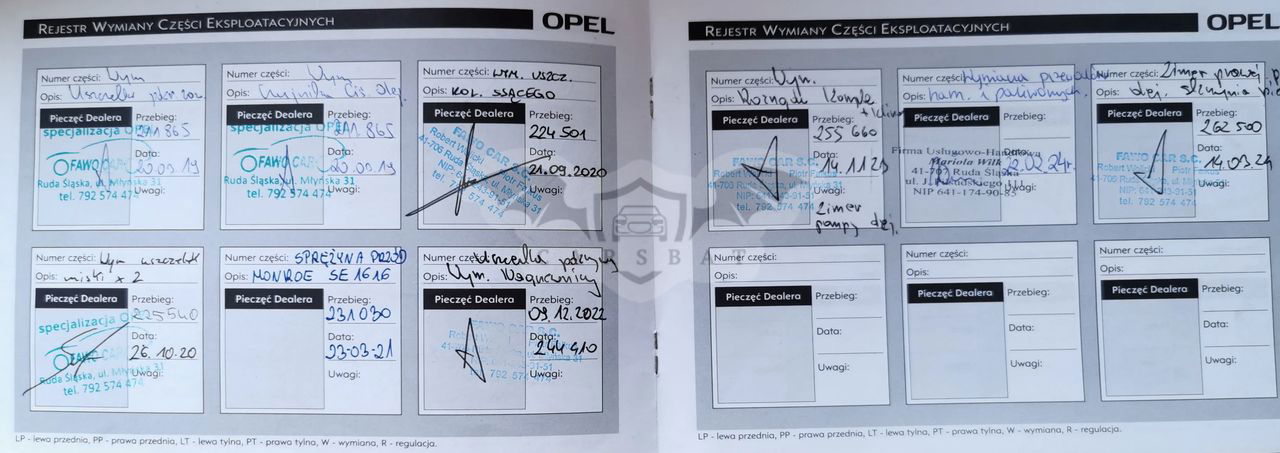 REJESTR WYMIANY CZĘŚCI EKSPLOATACYJNYCH
OPEL
Numer części: Wym
Opis: Uszczelka
Pieczęć Dealera
Przebieg:
211 865
Data:
20.09.19
Uwagi:
specjalizacja OPEL
FAWO CAR
Ruda Śląska, ul. Młyńska 31
tel. 792 574 474
Numer części: Wym
Opis: Czujnika Ciś Olej.
Pieczęć Dealera
Przebieg:
211 865
Data:
20.09.19
Uwagi:
specjalizacja OPEL
FAWO CAR
Ruda Śląska, ul. Młyńska 31
tel. 792 574 474
Numer części: WYM. USZCZ.
Opis: KOL. SSĄCEGO
Pieczęć Dealera
Przebieg:
224 501
Data:
21.09.2020
Uwagi:
FAWO CAR S.C.
Robert
41-706 Ruda Śląska, ul. Młyńska 31
tel. 792 574 474
Numer części: Wym uszczelek
Opis: miski x 2
Pieczęć Dealera
Przebieg:
225540
Data:
26.10.20
Uwagi:
specjalizacja
FAWO CAR
Ruda Śląska, ul. Młyńska 31
tel. 792 574 474
Numer części: SPRĘŻYNA
Opis: MONROE SE1616
Pieczęć Dealera
Przebieg:
231 030
Data:
23-03-21
Uwagi:
Numer części: Uszczelka pokrywy
Opis: Wym.
Pieczęć Dealera
Przebieg:
09.12.2022
Data:
244 410
Uwagi:
FAWO CAR S.C.
tel. 792 574 474
LP - lewa przednia, PP - prawa przednia, LT - lewa tylna, PT - prawa tylna, W - wymiana, R - regulacja.
CARSBAT
REJESTR WYMIANY CZĘŚCI EKSPLOATACYJNYCH
OPEL
Numer części: Wym.
Opis: Rozrządu
Pieczęć Dealera
Przebieg:
255 660
Data:
14.11.23
Uwagi:
Zimer
pompy olej.
FAWO CAR S.C.
Piotr
41-706 Ruda Śląska, ul. Młyńska 31
tel. 792 574 474
Numer części: Wymiana przewodów
Opis: ham. i paliwowych.
Pieczęć Dealera
Przebieg:
Data:
22.02.24r.
Uwagi:
Firma Usługowo-Handlowa
Mariola Wilk
41-707 Ruda Śląska
NIP 641-174-90-85
Numer części: Zimer prawej
Opis: olej.
Pieczęć Dealera
Przebieg:
262 500
Data:
14.03.24
Uwagi:
FAWO CAR S.C.
Piotr
tel. 792 574 474
Numer części:
Opis:
Pieczęć Dealera
Przebieg:
Data:
Uwagi:
Numer części:
Opis:
Pieczęć Dealera
Przebieg:
Data:
Uwagi:
Numer części:
Opis:
Pieczęć Dealera
Przebieg:
Data:
Uwagi:
LP - lewa przednia, PP - prawa przednia, LT - lewa tylna, PT - prawa tylna, W - wymiana, R - regulacja.